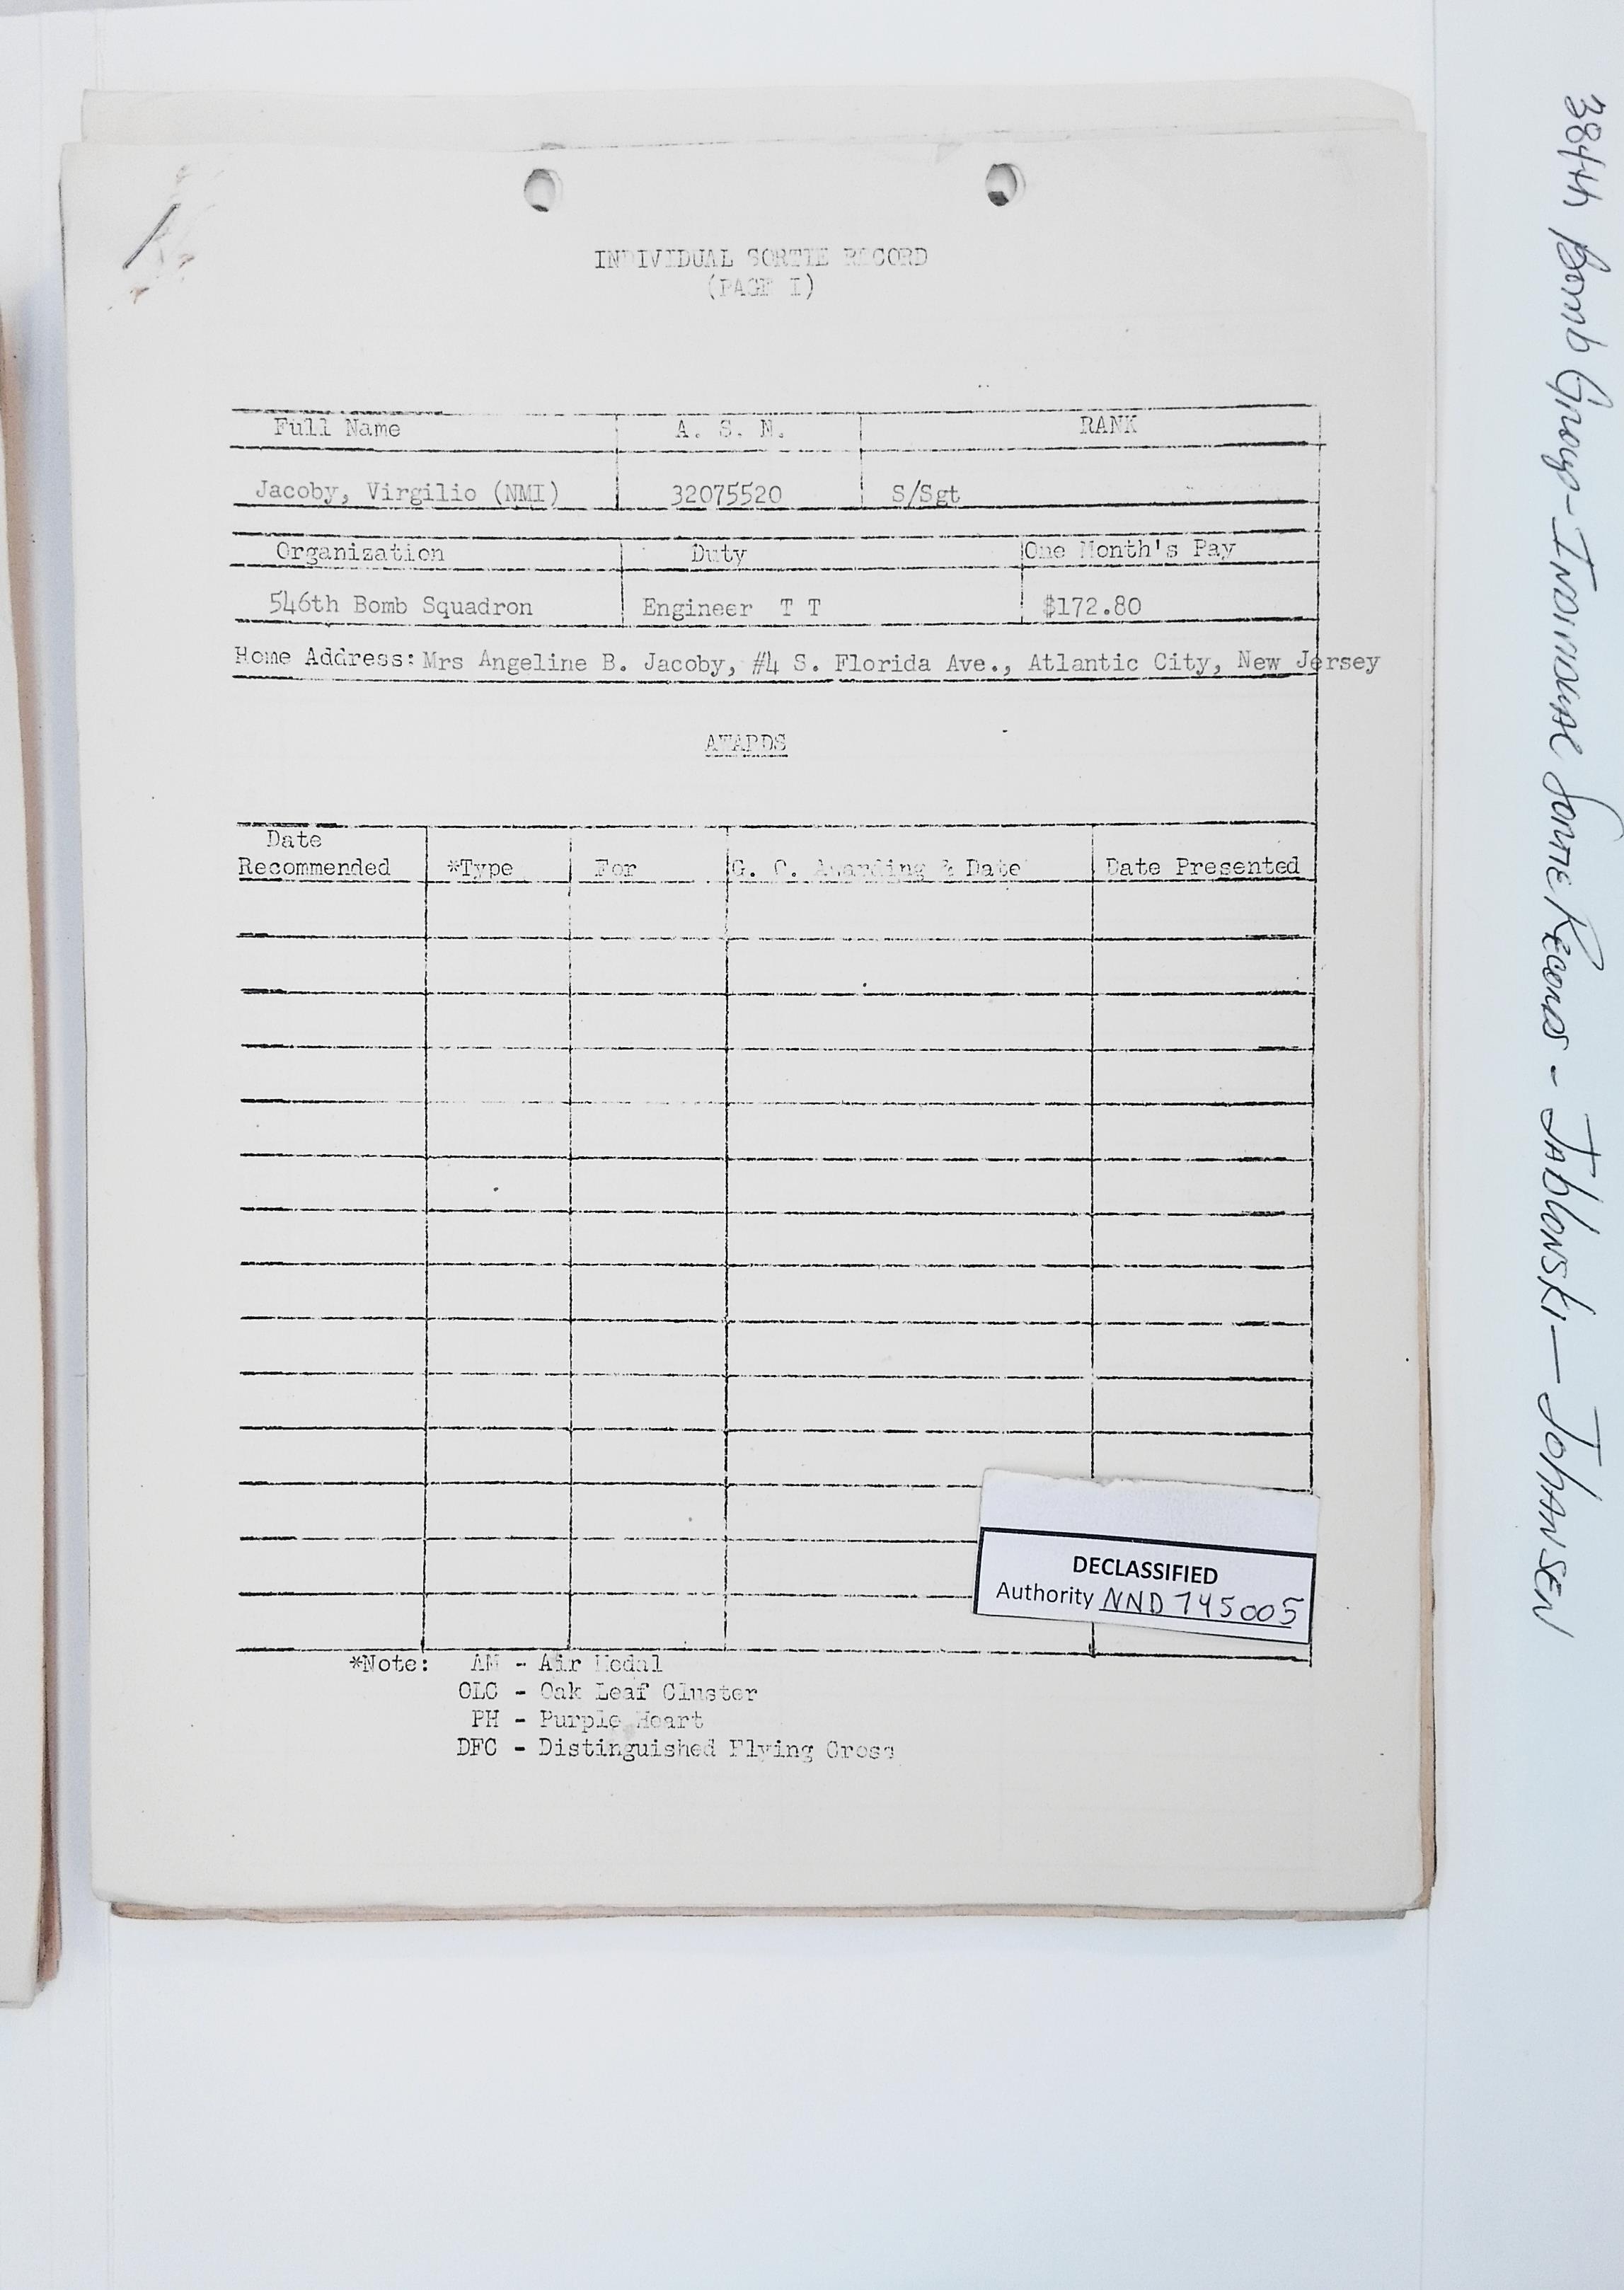 INDIVIDUAL SORTIE RECORD
(PAGE I)
Full Name A. S. N. RANK
Jacoby, Virgilio (NMI) 32075520 S/Sgt
Organization Duty One Month's Pay
546th Bomb Squadron Engineer T T $172.80
Home Address: Mrs Angeline B. Jacoby, #4 S. Florida Ave., Atlantic City, New Jersey
AWARDS
Date
Recommended *Type For G. O. Awarding & Date Date Presented
DECLASSIFIED
Authority NND 745005
*Note: AM - Air Medal
OLC - Oak Leaf Cluster
PH - Purple Heart
DFC - Distinguished Flying Cross
384th Bomb Group - Individual Sortie Records - Jablonski — Johansen